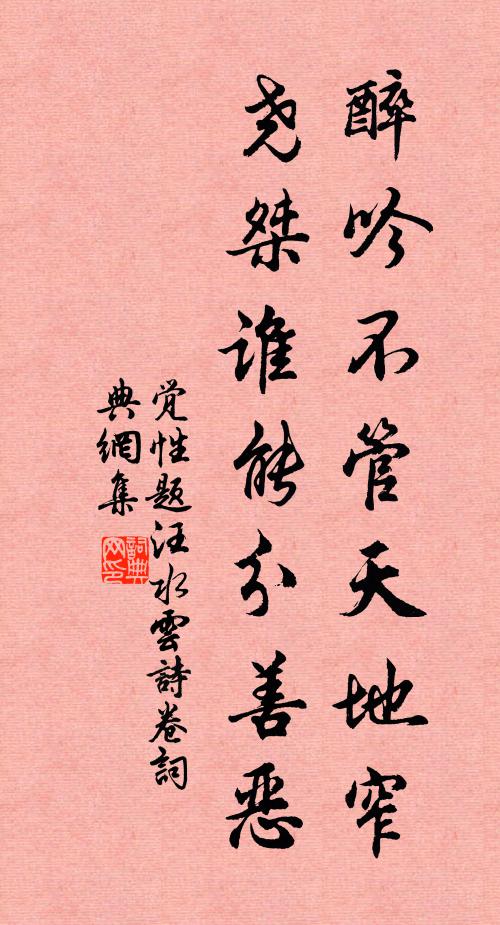 醉吟不管天地窄
尭桀谁能分善恶
觉性题汪水雲詩卷詞
典網集
詞典
网印